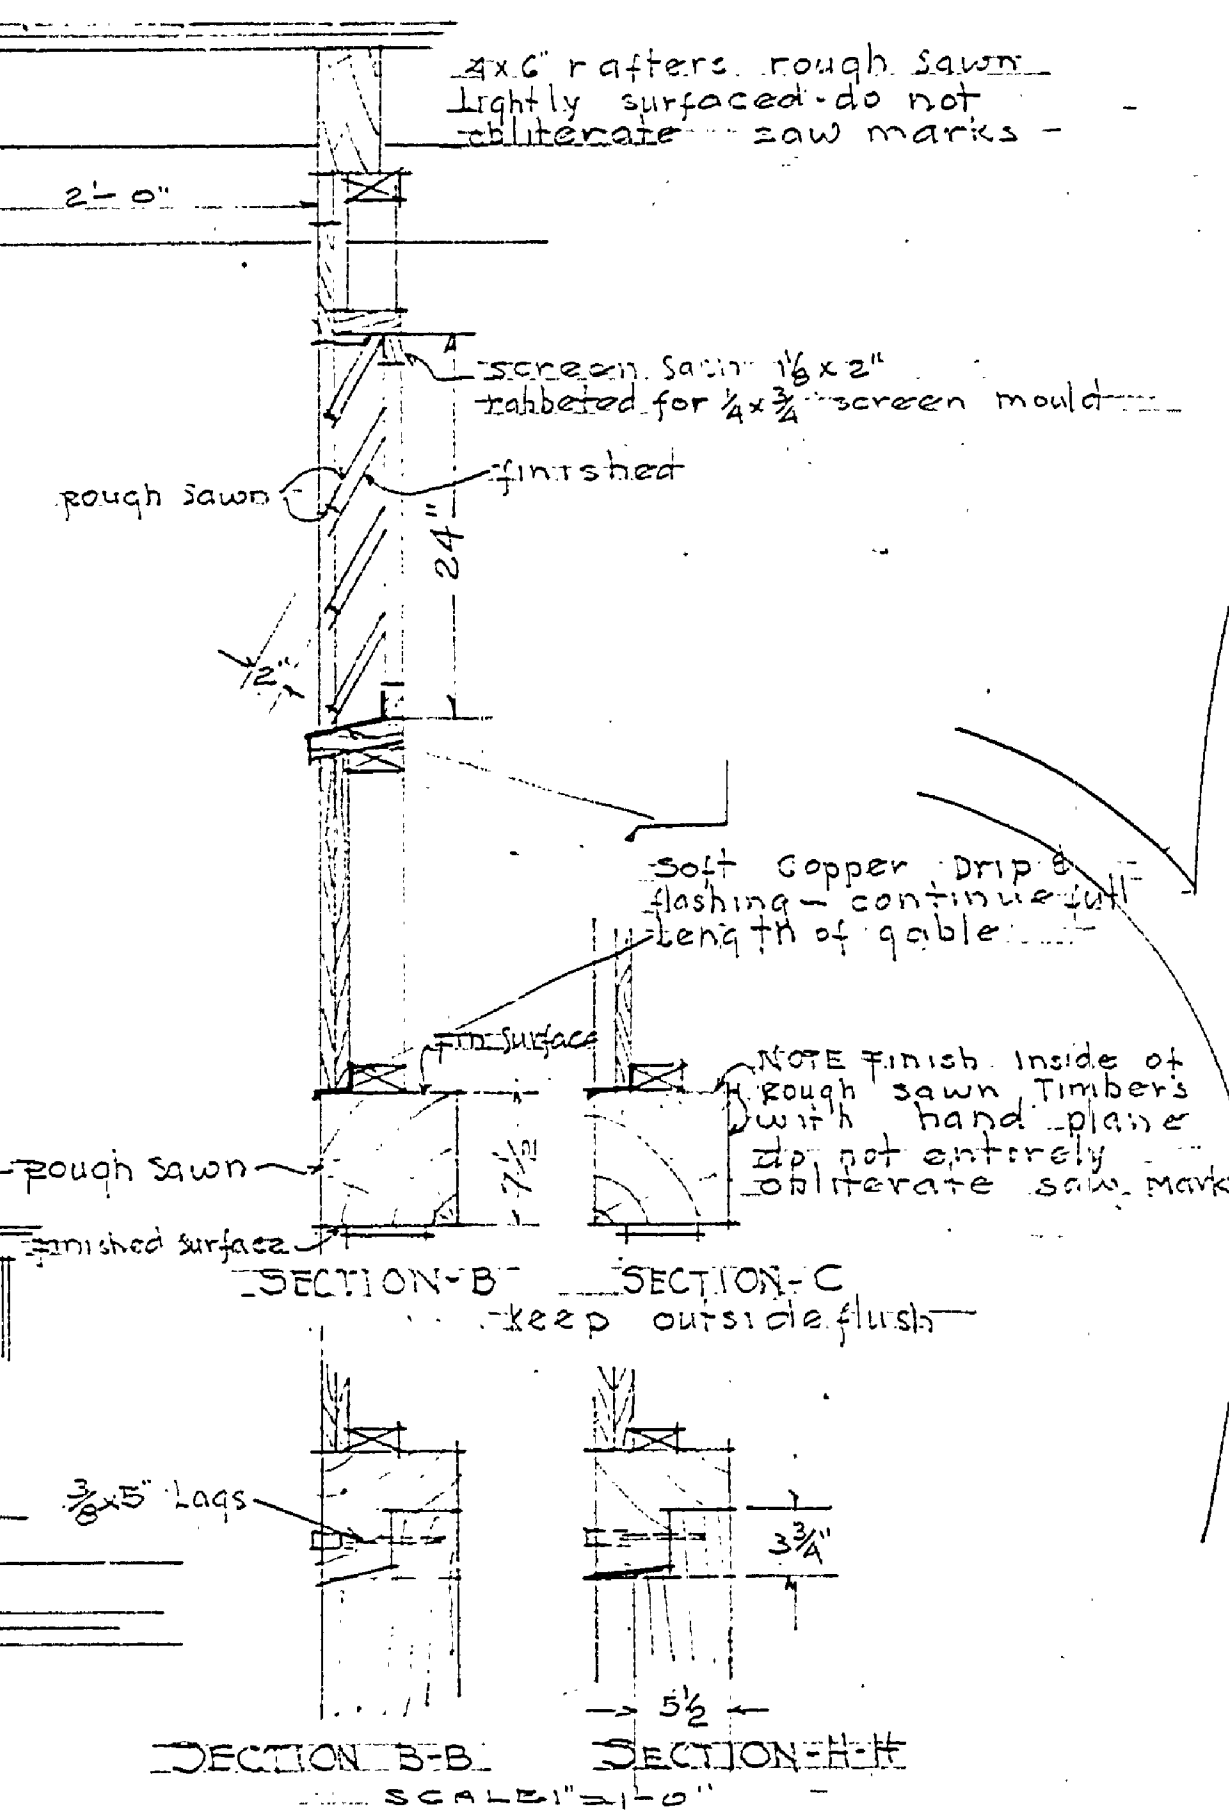 4x6" rafters rough sawn
lightly surfaced - do not
obliterate saw marks -
2'-0"
screen sash 1 1/8 x 2"
rabbeted for 1/4 x 3/4 screen mould
finished
rough sawn
24"
1/2"
Soft Copper Drip &
flashing - continue full
length of gable
Fin surface
NOTE Finish inside of
rough sawn Timbers
with hand plane
do not entirely
obliterate saw mark
7 1/2
rough sawn
Finished surface
SECTION-B
SECTION-C
keep outside flush
3/8 x 5" Lags
3 3/4"
5 1/2
SECTION B-B
SECTION-H-H
SCALE 1" = 1'-0"